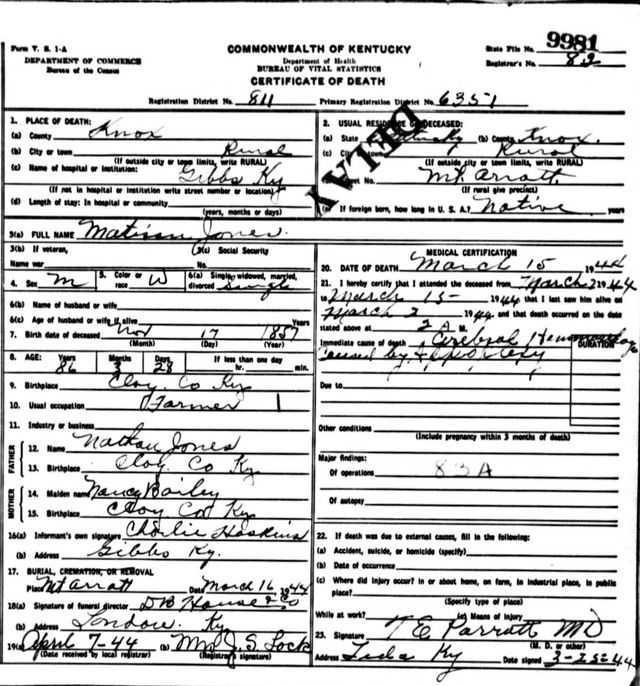 Form V. S. 1-A
DEPARTMENT OF COMMERCE
Bureau of the Census
COMMONWEALTH OF KENTUCKY
Department of Health
BUREAU OF VITAL STATISTICS
CERTIFICATE OF DEATH
State File No. 9981
Registrar's No. 82
Registration District No. 811 Primary Registration District No. 6351
1. PLACE OF DEATH:
(a) County Knox
(b) City or town Rural
(If outside city or town limits, write RURAL)
(c) Name of hospital or institution: Gibbs Ky
(If not in hospital or institution write street number or location)
(d) Length of stay: In hospital or community
(years, months or days)
2. USUAL RESIDENCE OF DECEASED:
(a) State (b) County Knox.
(c) City or town Rural
(If outside city or town limits, write RURAL)
Street No. Mt. Arratt
(If rural give precinct)
(e) If foreign born, how long in U. S. A.? Native years
3(a) FULL NAME Matison Jones.
3(b) If veteran,
Name war
3(c) Social Security
No.
4. Sex M 5. Color or race W 6(a) Single, widowed, married, divorced Single
6(b) Name of husband or wife
6(c) Age of husband or wife if alive Years
7. Birth date of deceased Nov 17 1857
(Month) (Day) (Year)
8. AGE: Years 86 Months 3 Days 28 If less than one day
hr. min.
9. Birthplace Clay. Co Ky
10. Usual occupation Farmer
11. Industry or business
FATHER
12. Name Nathan Jones
13. Birthplace Clay Co Ky
MOTHER
14. Maiden name Nancy Bailey
15. Birthplace Clay Co Ky
16(a) Informant's own signature Charlie Hoskins
(b) Address Gibbs Ky.
17. BURIAL, CREMATION, OR REMOVAL
Place Mt arratt Date March 16 1944
18(a) Signature of funeral director D B House & Co
(b) Address London Ky
19(a) April 7-44 (b) Mrs J. S. Lock
(Date received by local registrar) (Registrar's signature)
MEDICAL CERTIFICATION
20. DATE OF DEATH March 15 1944
21. I hereby certify that I attended the deceased from March 2 1944
to March 15- 1944 that I last saw him alive on
March 2 1944. and that death occurred on the date
stated above at 2 A M.
Immediate cause of death Cerebral Hemmorhage
DURATION
caused by
Due to
Other conditions
(Include pregnancy within 3 months of death)
Major findings:
Of operations 83A
Of autopsy
22. If death was due to external causes, fill in the following:
(a) Accident, suicide, or homicide (specify)
(b) Date of occurrence
(c) Where did injury occur? In or about home, on farm, in industrial place, in public
place?
(Specify type of place)
While at work? (e) Means of injury
23. Signature T E Parrott MD
(M. D. or other)
Address Lida Ky Date signed 3-25-44